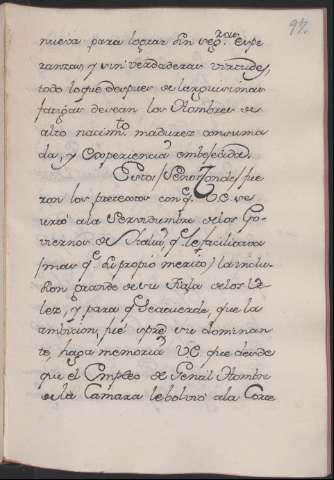 97.
nueva para lograr sin seg.ras espe
ranzas, y sin verdaderas virtudes,
todo lo que despues de larguisimas
fatigas desean los Hombres de
alto nacim.to madurez consuma
da, y Experiencia
Estos, Señor Conde, fue
ron los pretextos con q.e VE se
á la Servidumbre de los Go-
viernos de Italia, q.e le facilitaron
(mas q.e su propio merito) la
grande de su de los Ve
lez, y para q.e se acuerde, que la
ambicion, fue su dominan
te, haga memoria VE, que desde
que el Empleo de Genâl Hombre
de la Camara le bolvió á la Corte